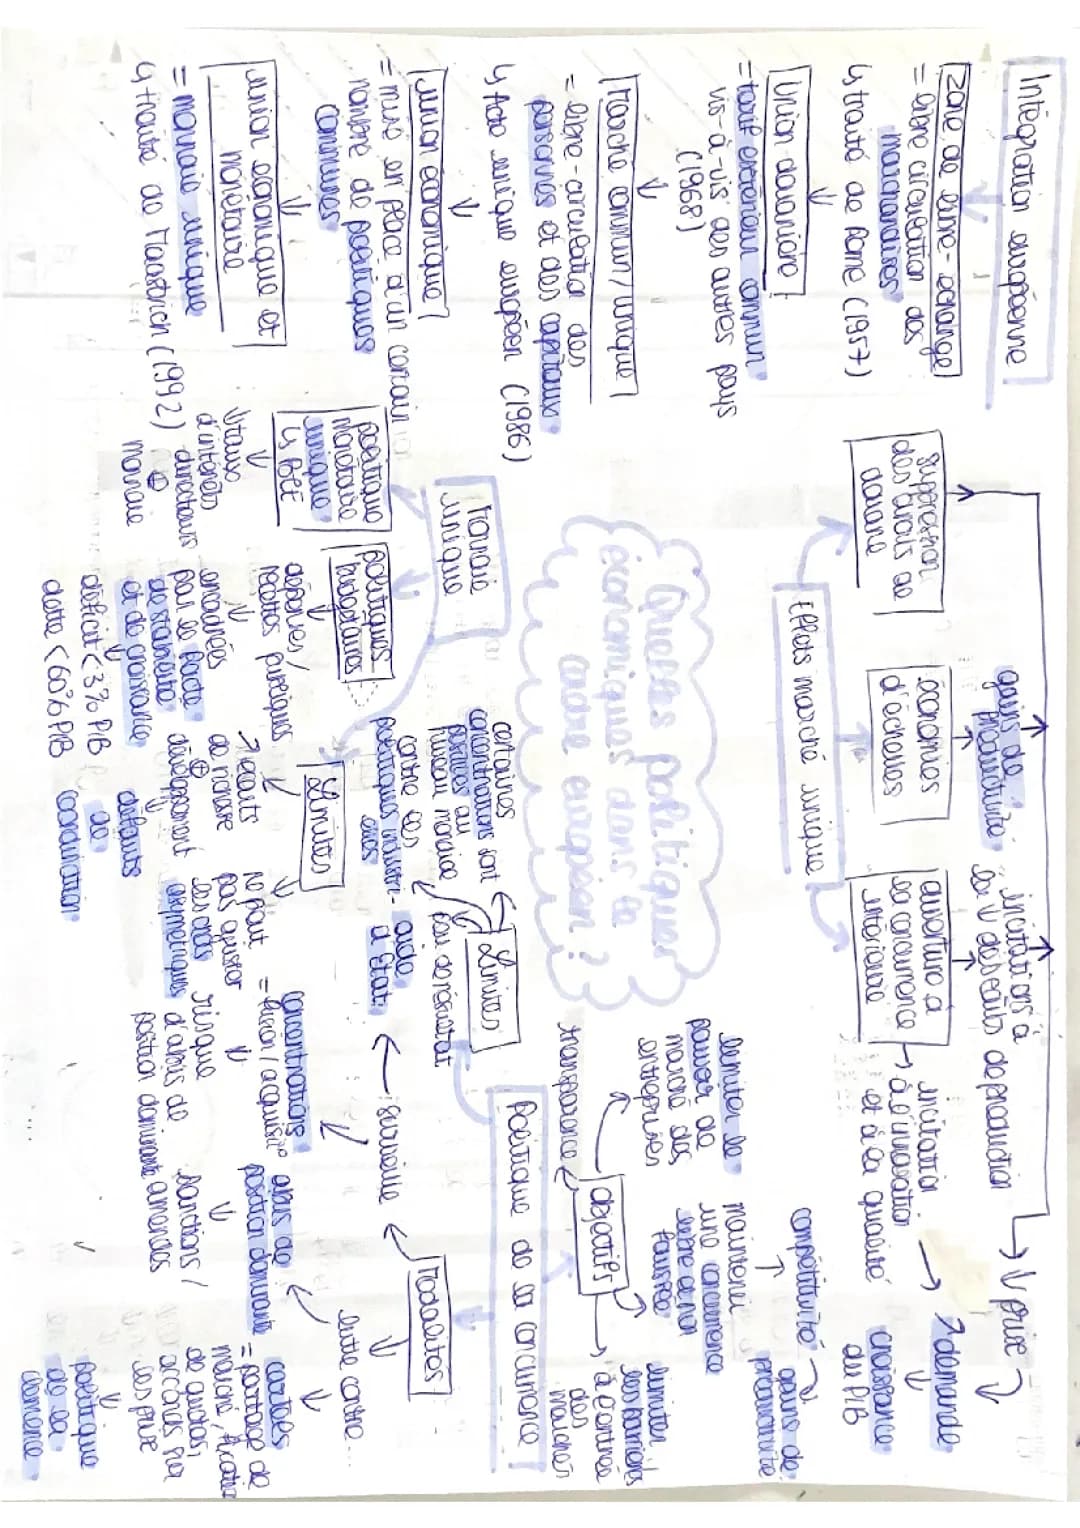 Intégration européenne
Zone de libre-échange
= libre circulation des
marchandises
↳ traité de Rome (1957)
Union douanière
= tarif extérieur commun
vis-à-vis des autres pays
(1968)
Marché commun / unique
= libre-circulation des
personnes et des capitaux
↳ Acte unique européen (1986)
Union économique
= mise en place d'un certain
nombre de politiques
communes
Union économique et
monétaire
= monnaie unique
↳ traité de Maastrich (1992)
Quelles politiques
économiques dans le
cadre européen ?
Effets marché unique
suppression
des droits de
douane
économies
d'échelles
gains de
productivité
ouverture à
la concurrence
intérieure
incitations à
la ↓ des coûts de production
incitation
à l'innovation
et à la qualité
↓ prix
↗ demande
croissance
du PIB
compétitivité
gains de
productivité
Monnaie
unique
politique
monétaire
unique
↳ BCE
↓ taux
d'intérêts
directeurs
⊕
monnaie
politiques
budgétaires
dépenses/
recettes publiques
encadrées
par le pacte
de stabilité
et de croissance
déficit < 3% PIB
dette < 60% PIB
Limites
↗ écarts
de richesse
⊕
développement
défauts
de
coordination
ne peut
pas ajuster
les chocs
asymétriques
Politique de la concurrence
Limites
certaines
concentrations sont
positives au
niveau mondial
contre les
politiques industri-
elles
peu de résultat
objectifs
limiter le
pouvoir de
marché des
entreprises
maintenir
une concurrence
libre et non
faussée
limiter
les barrières
à l'entrée
des
marchés
transparence
Modalités
surveille
aide
d'État
lutte contre...
concentrations
= fusion / acquisit°
risque
d'abus de
position dominante
abus de
position dominante
sanctions /
amendes
cartels
= partage de
marché, fixation
de quotas,
accords sur
les prix
politique
de la
clémence